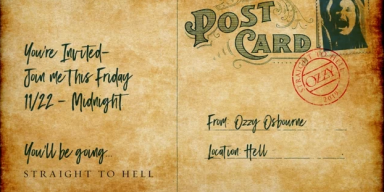 You're Invited-
Join me This Friday
11/22 - Midnight
You'll be going...
STRAIGHT TO HELL
POST
CARD
STRAIGHT TO HELL
OZZY
From: Ozzy Osbourne
Location Hell